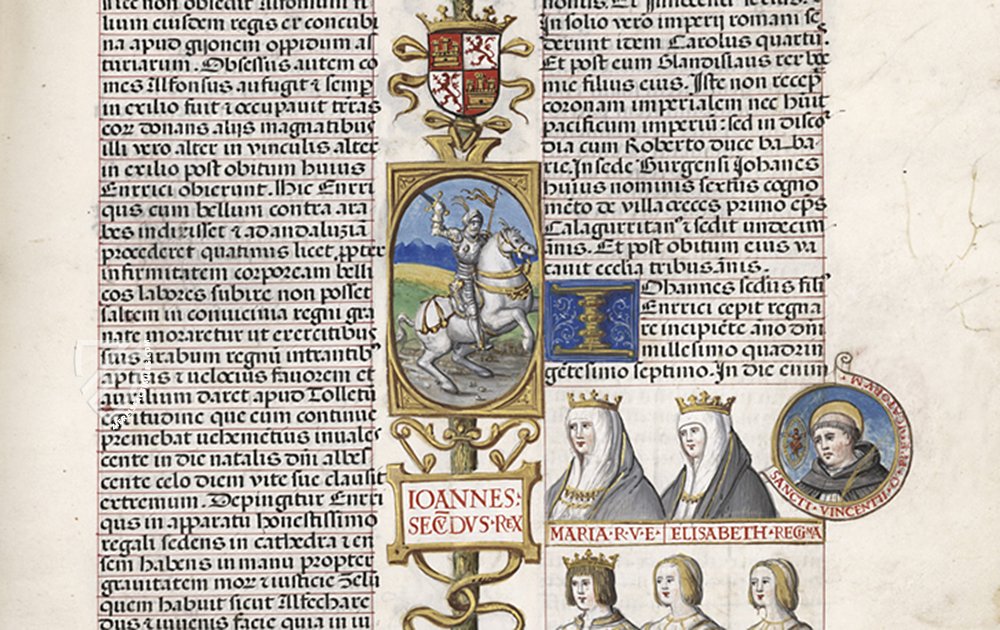 uit nec obedit Alfonsum fi
lium eiusdem regis ex concubi
na apud gijonem oppidum as
turiarum. Obsessus autem co
mes Alfonsus aufugit & semp
in exilio fuit & occupauit terras
eor donans alijs magnatibus
illi vero alter in vinculis alter
in exilio post obitum huius
Enrrici obierunt. Hic Enrri
qus cum bellum contra ara
bes indixisset & ad andaluziã
procederet quatinus licet, ppter
infirmitatem corpoream belli
cos labores subire non posset
saltem in conuicinia regni gra
nate moraretur ut exercitibus
suis arabum regnũ intrantib
aptius & uelocius fauorem et
auxilium daret apud Tolletũ
egritudine que eum continue
premebat uehemẽtius inuales
cente in die natalis dñi albes
cente celo diem vite sue clausit
extremum. Depingitur Enrri
qus in apparatu honestissimo
regali sedens in cathedra & en
sem habens in manu propter
grauitatem mor & iusticie Zelũ
quem habuit sicut Alfechare
dus & iuuenis facie quia in iu
IOANNES
SECṼDVS REX
nomis. Et Innocenti
In solio vero imperii romani se
derunt item Carolus quartũ.
Et post eum Glandislaus rex boe
mie filius eius. Iste non recep
coronam imperialem nec huit
pacificum imperiũ: sed in disco
dia cum Roberto duce ba_ba
rie. In sede Burgensi Johanes
huius nominis sextus cogno
mẽto de villacreces primo eps
Calagurritan & sedit undecim
ãnis. Et post obitum eius va
cauit ecclia tribus ãnis.
IOhannes scdus fili
Enrrici cepit regna
re incipiẽte ãno dñi
millesimo quadrin
gẽtesimo septimo. In die enim
SANCTI VINCENTII
MARIA R V E
ELISABETH REGINA